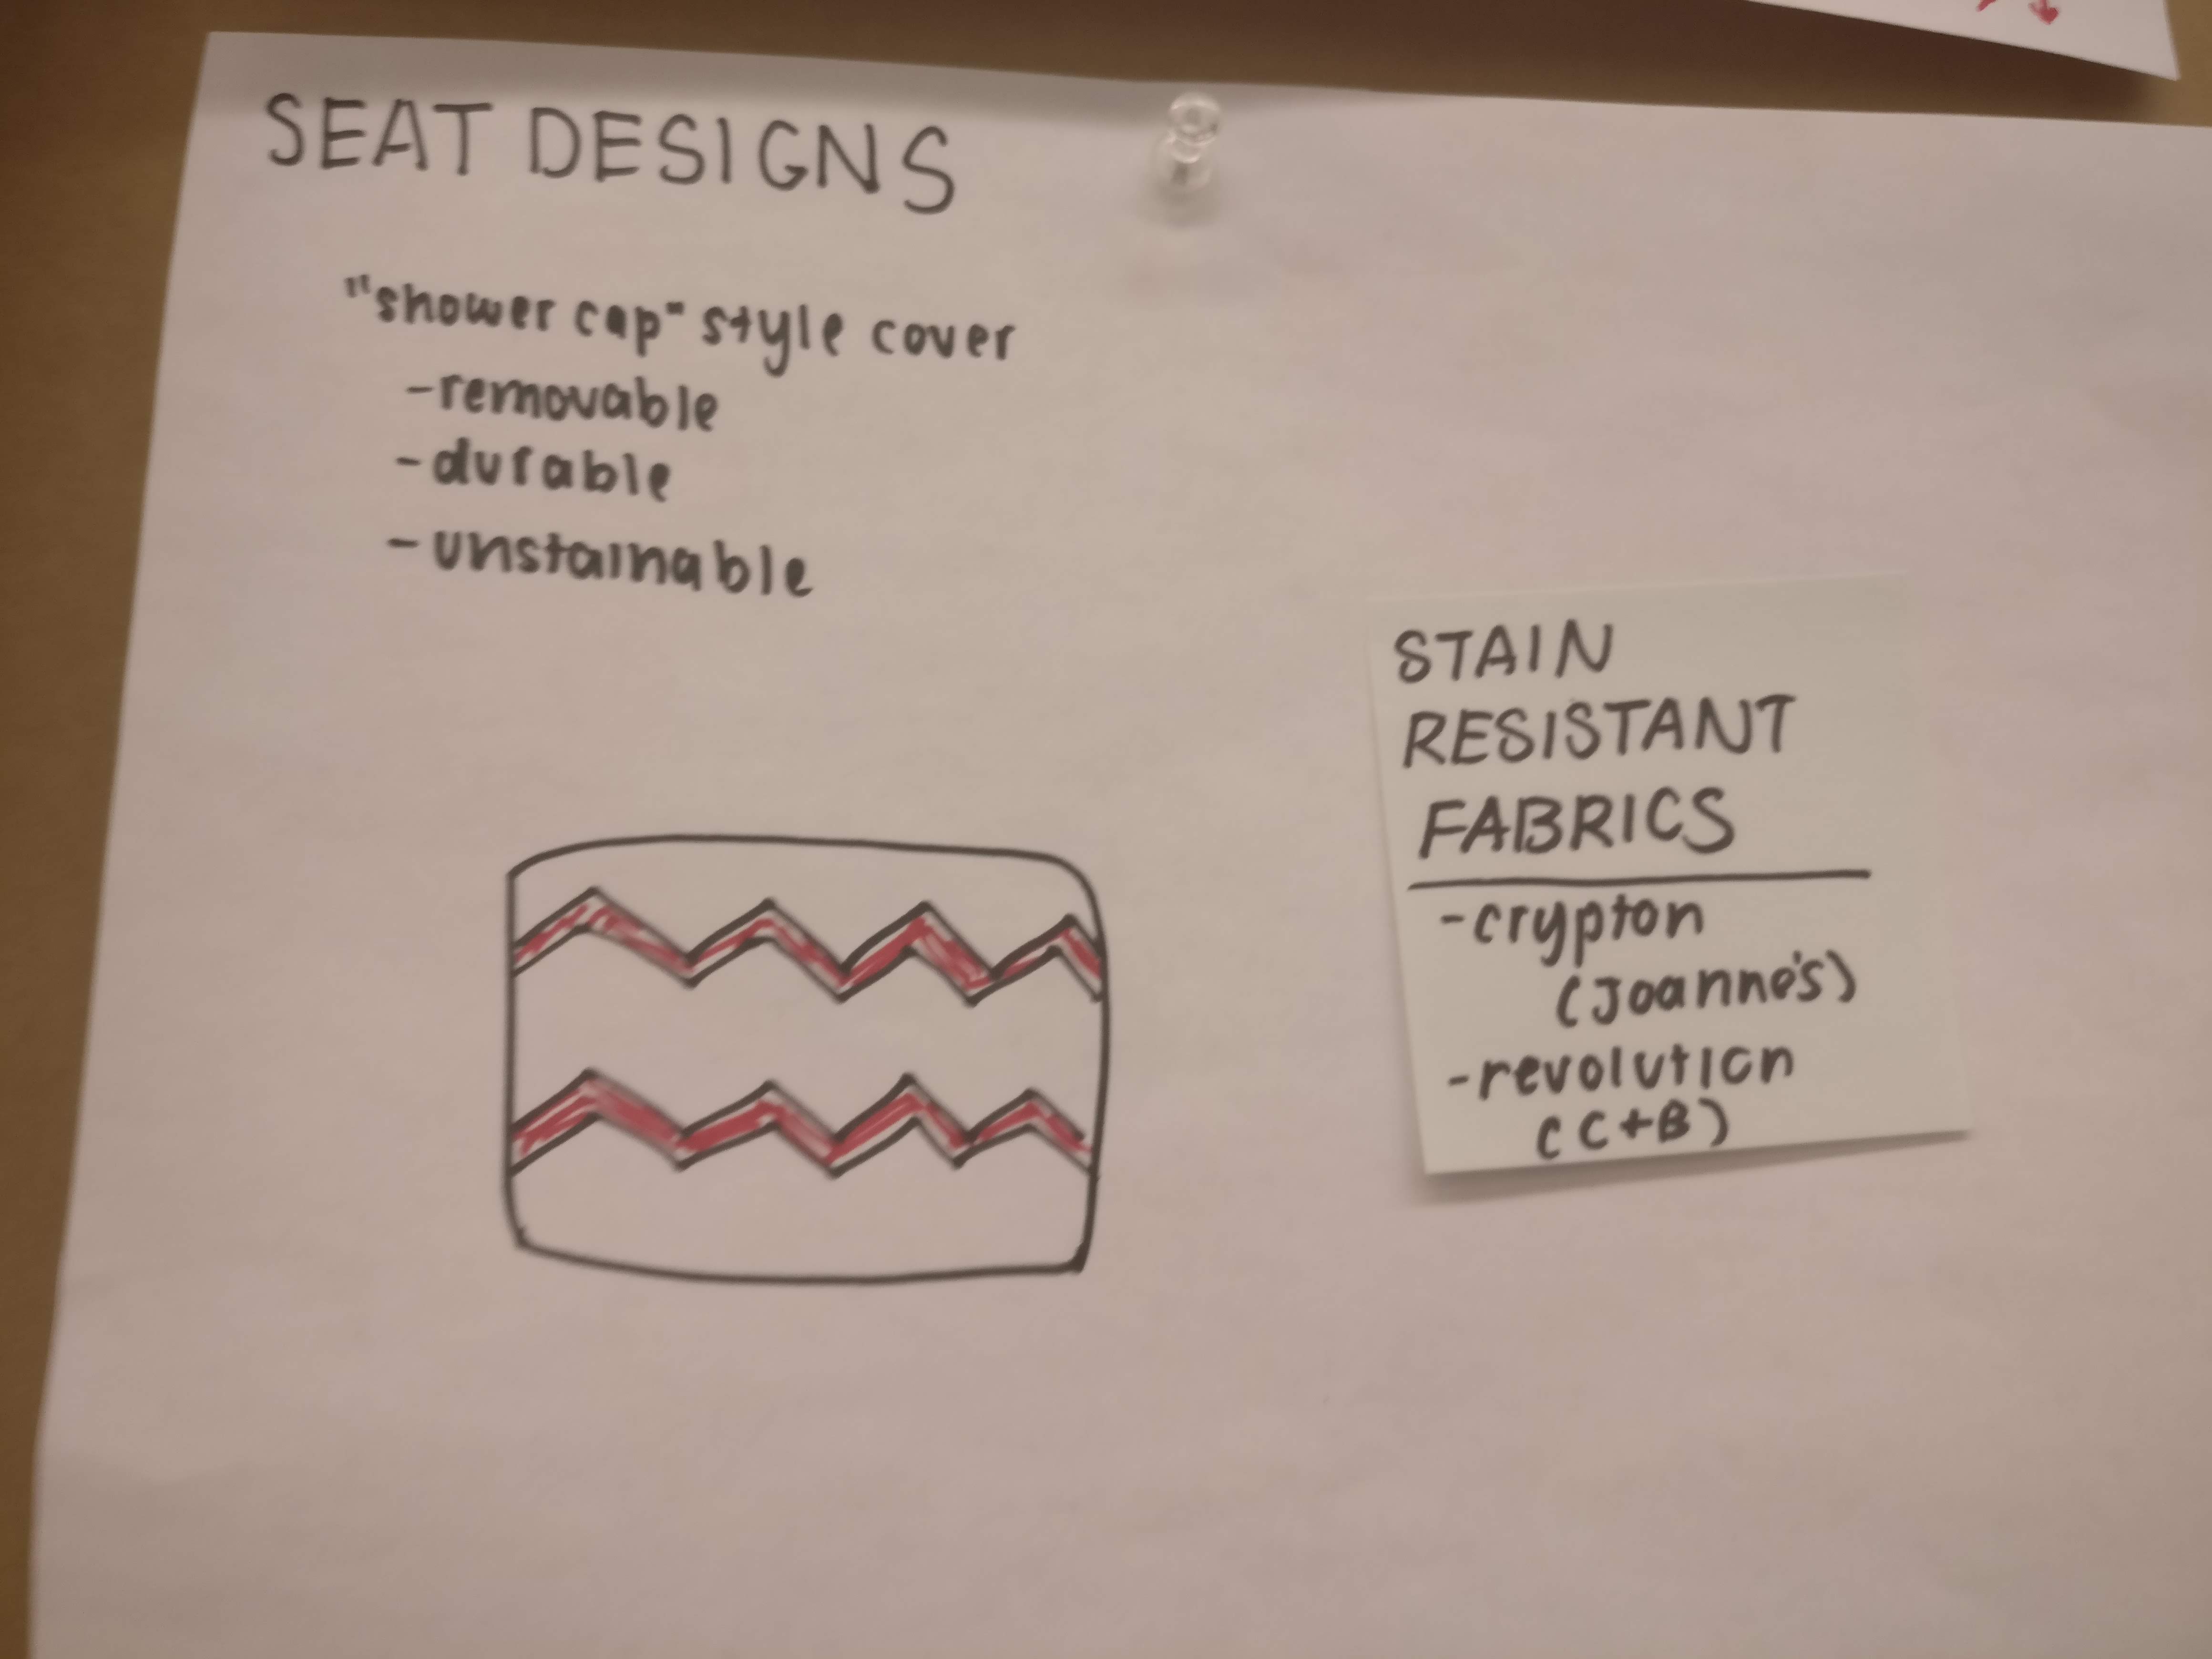 SEAT DESIGNS
"shower cap" style cover
-removable
-durable
-unstainable
STAIN
RESISTANT
FABRICS
-crypton
(Joanne's)
-revolution
(C+B)